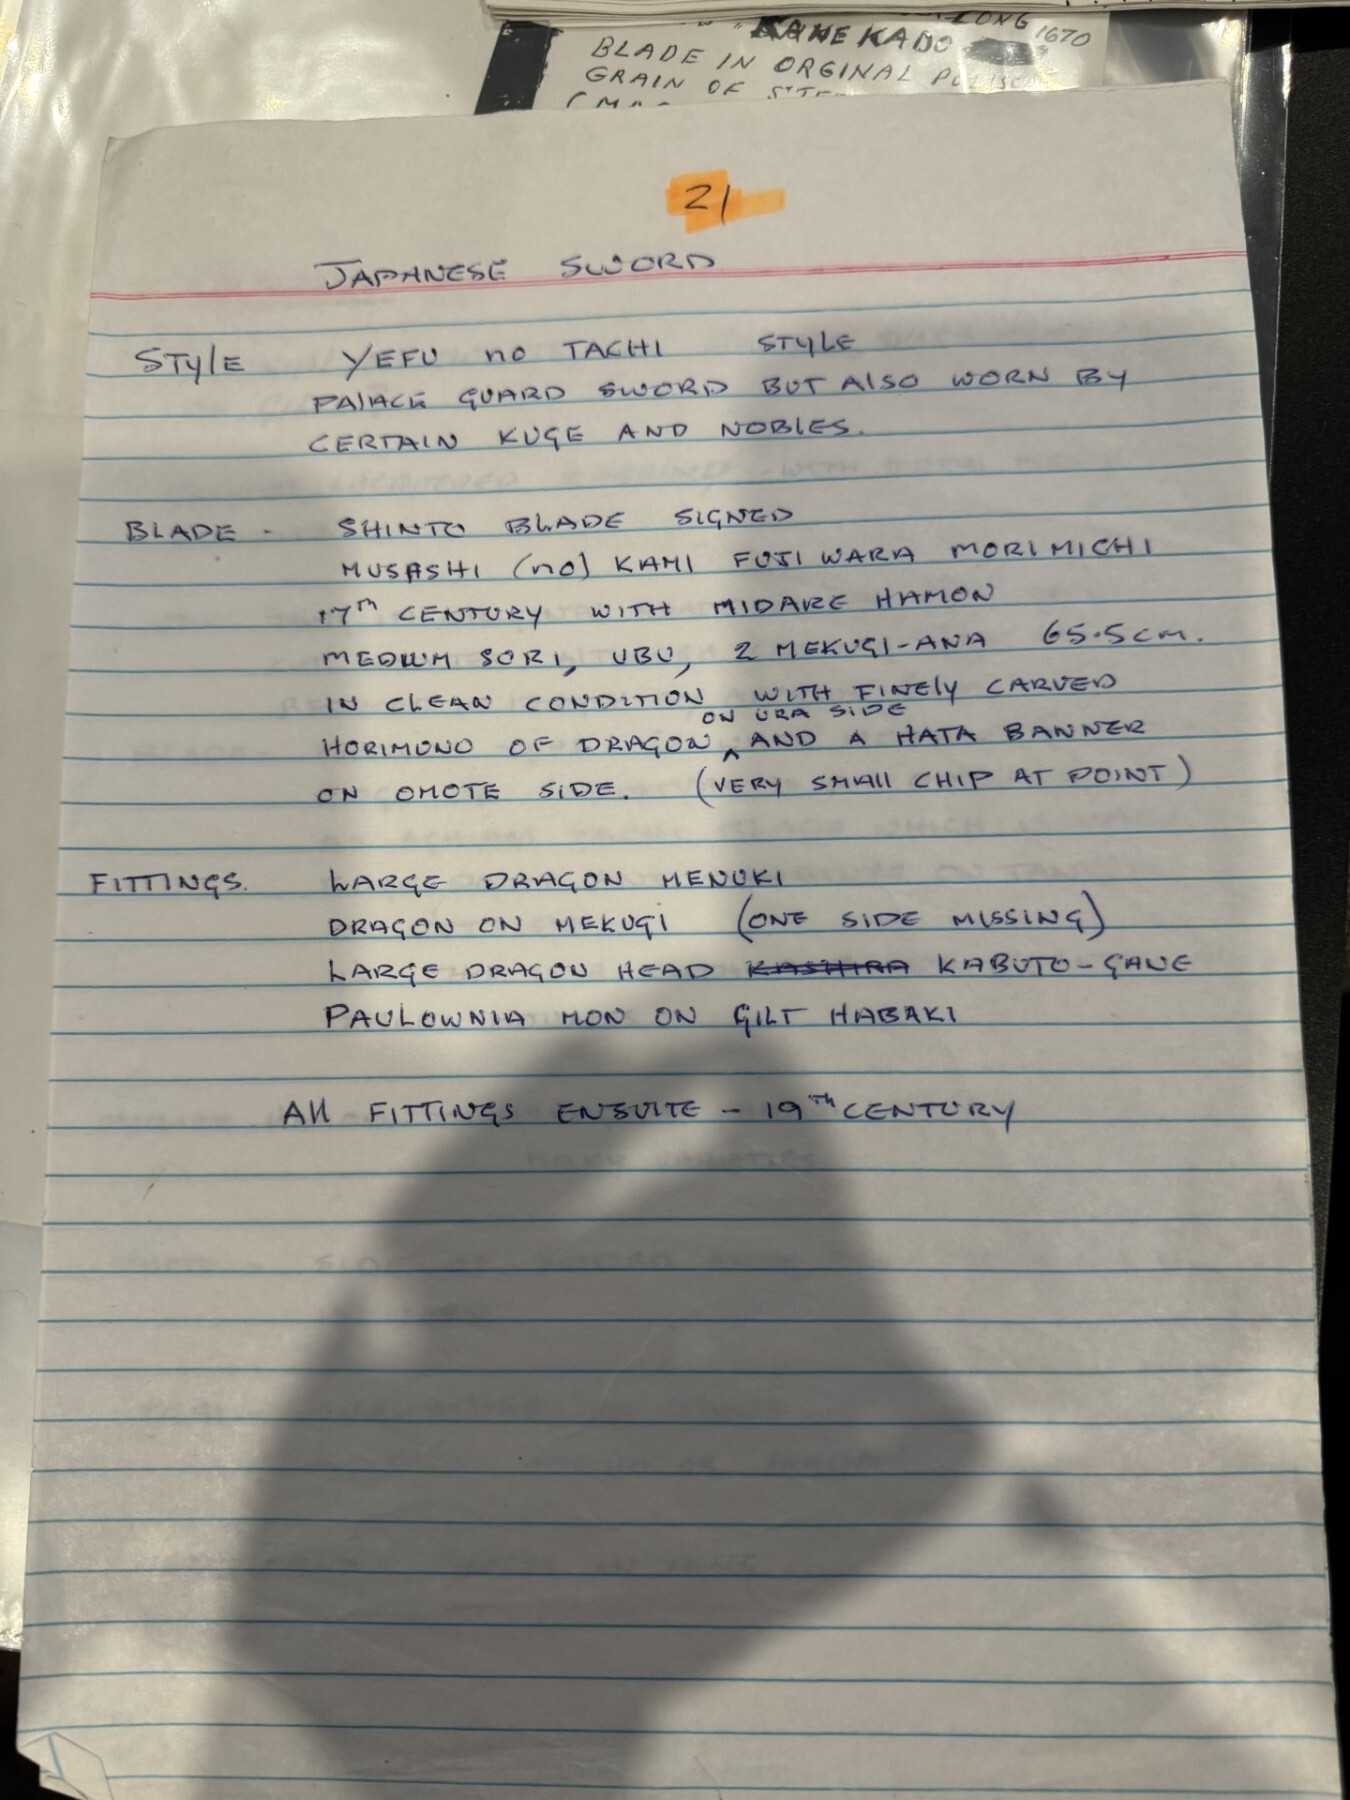 LONG 1670
"KANEKADO
BLADE IN ORGINAL
GRAIN OF
21
JAPANESE SWORD
STYLE YEFU no TACHI STYLE
PALACE GUARD SWORD BUT ALSO WORN BY
CERTAIN KUGE AND NOBLES.
BLADE - SHINTO BLADE SIGNED
MUSASHI (no) KAMI FUJIWARA MORIMICHI
17th CENTURY WITH MIDARE HAMON
MEDIUM SORI, UBU, 2 MEKUGI-ANA 65.5cm.
IN CLEAN CONDITION WITH FINELY CARVED
ON URA SIDE
HORIMONO OF DRAGON ^ AND A HATA BANNER
ON OMOTE SIDE. (VERY SMALL CHIP AT POINT)
FITTINGS. LARGE DRAGON MENUKI
DRAGON ON MEKUGI (ONE SIDE MISSING)
LARGE DRAGON HEAD KASHIRA KABUTO-GANE
PAULOWNIA MON ON GILT HABAKI
All FITTINGS ENSUITE - 19TH CENTURY